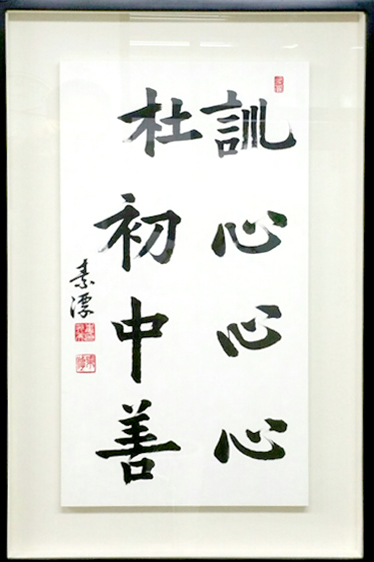 訓心心心
杜初中善
素潭